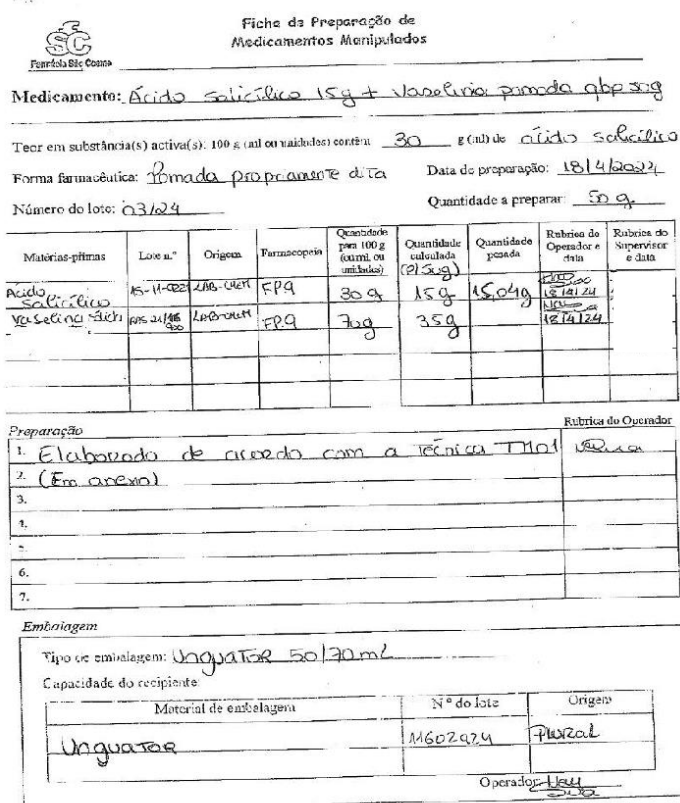 Ficha de Preparação de
Medicamentos Manipulados
SC
Farmácia São Cosme
Medicamento: Ácido salicílico 15g + Vaselina pomada qbp 50g
Teor em substância(s) activa(s): 100 g (ml ou unidades) contêm 30 g (ml) de ácido salicílico
Forma farmacêutica: Pomada propriamente dita Data de preparação: 18/4/2024
Número do lote: 03/024 Quantidade a preparar: 50 g.
Matérias-primas Lote n.º Origem Farmacopeia Quantidade para 100 g (ou ml, ou unidades) Quantidade calculada (p/50g) Quantidade pesada Rubrica do Operador e data Rubrica do Supervisor e data
Ácido Salicílico LAB-CHEM FP9 30 g 15 g 15,04g 18/4/24
Vaselina LAB-CHEM FP9 70g 35g 18/4/24
Preparação Rubrica do Operador
1. Elaborado de acordo com a Técnica TM01
2. (Em anexo)
3.
4.
5.
6.
7.
Embalagem
Tipo de embalagem: Unguator 50/70mL
Capacidade do recipiente:
Material de embalagem N.º do lote Origem
Unguator 11602924 Plural
Operador: